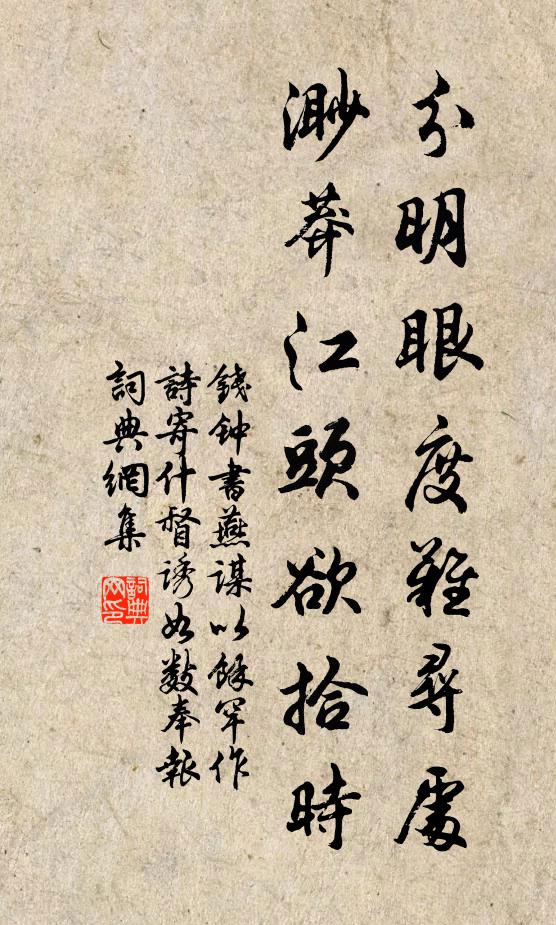 分明眼度難尋處
渺莽江頭欲拾時
錢鈡書燕謀以餘罕作
詩寄什督诱如數奉報
詞典網集
詞典
网印